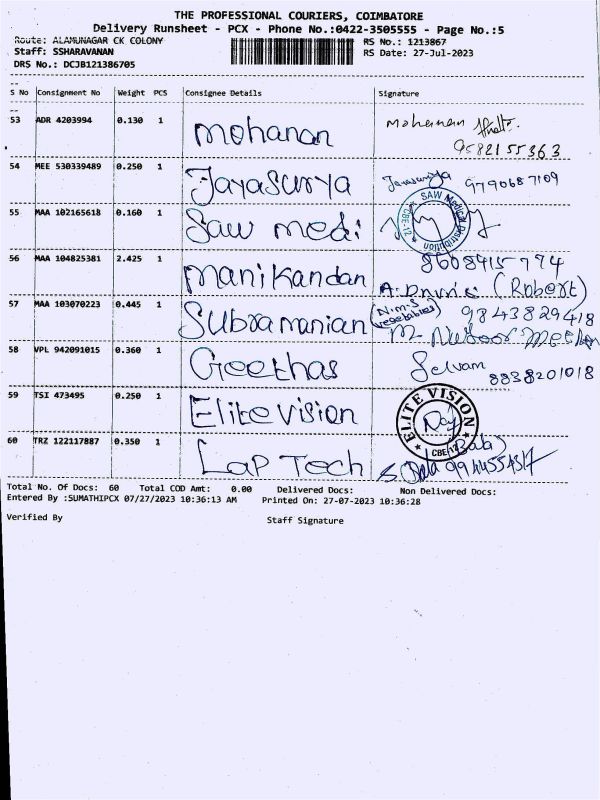 THE PROFESSIONAL COURIERS, COIMBATORE
Delivery Runsheet - PCX - Phone No.:0422-3505555 - Page No.:5
Route: ALAMUNAGAR CK COLONY
RS No.: 1213867
Staff: SSHARAVANAN
RS Date: 27-Jul-2023
DRS No.: DCJB121386705
S No Consignment No Weight PCS Consignee Details Signature
53 ADR 4203994 0.130 1 Mohanan Mohanan
9582155363
54 MEE 530339489 0.250 1 Jayasurya Jayasurya 9790687109
55 MAA 102165618 0.160 1 Saw medi SAW Medical Distribution CBE-12
56 MAA 104825381 2.425 1 Manikandan 8608415774
(Robert)
57 MAA 103070223 0.445 1 Subramanian (N.M.S vegetables) 9843829418
58 VPL 942091015 0.360 1 Geethas Selvam 8838201018
59 TSI 473495 0.250 1 Elite vision ELITE VISION CBE-12
60 TRZ 122117887 0.350 1 Lap Tech
Total No. Of Docs: 60 Total COD Amt: 0.00 Delivered Docs: Non Delivered Docs:
Entered By :SUMATHIPCX 07/27/2023 10:36:13 AM Printed On: 27-07-2023 10:36:28
Verified By
Staff Signature